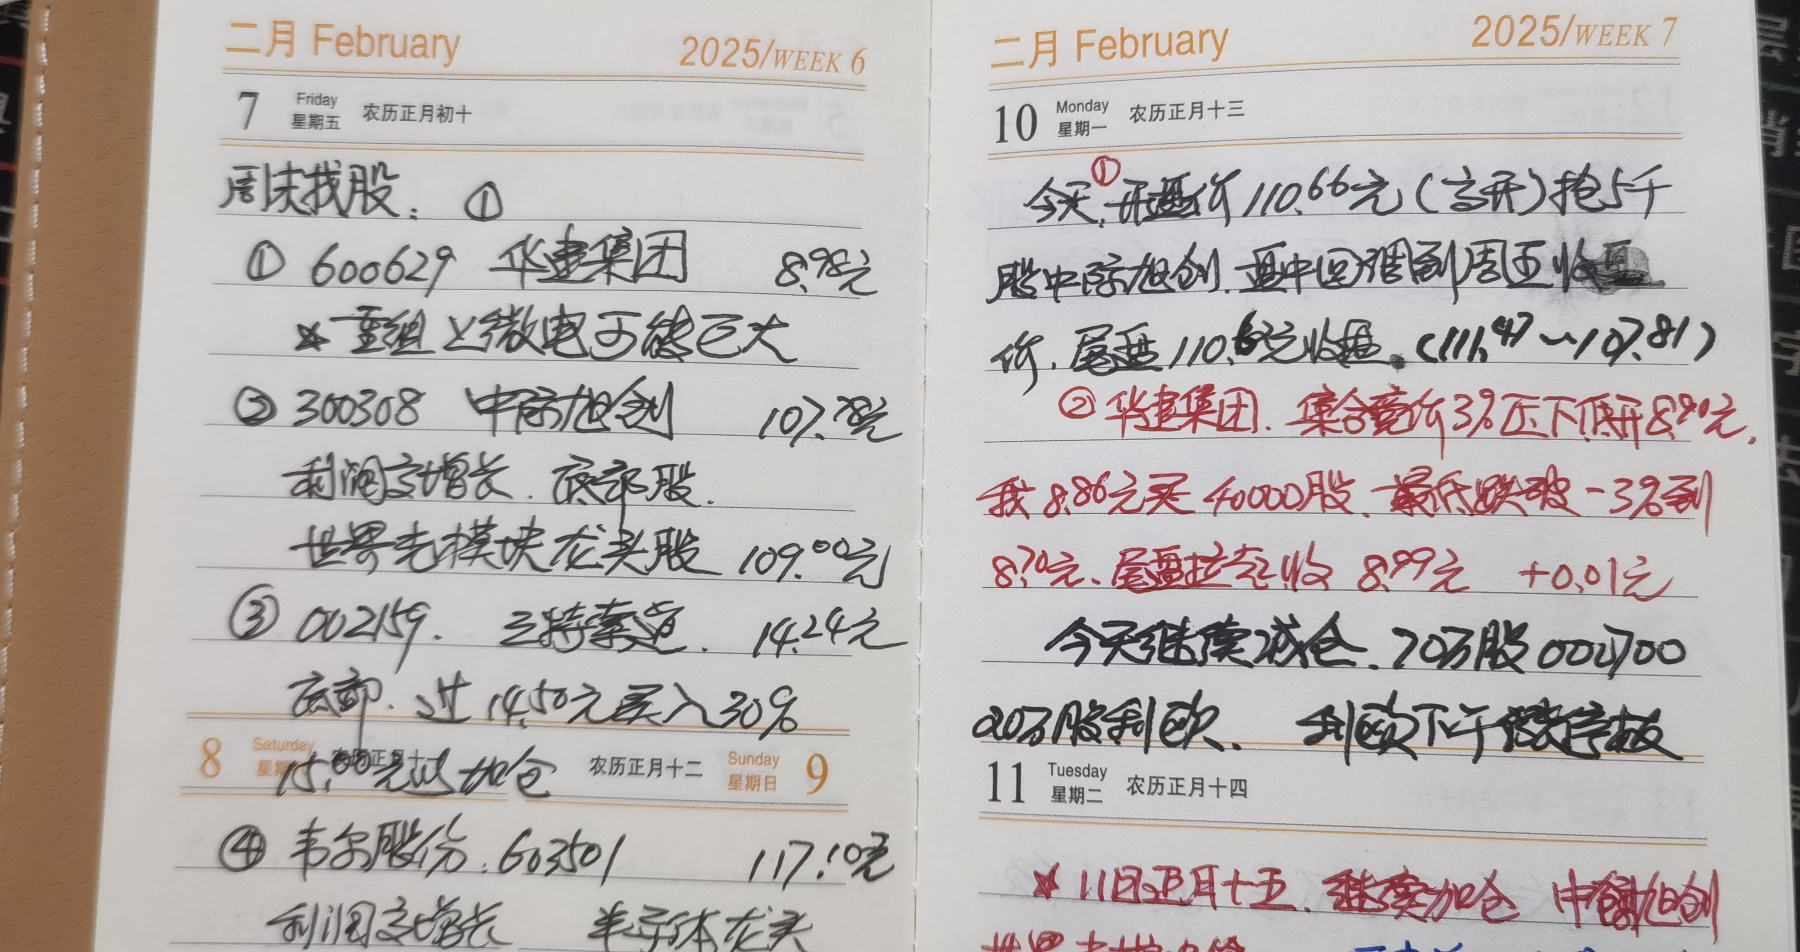 二月 February 2025/WEEK 6
7 Friday 星期五 农历正月初十
周末找股: ①
① 600629 华建集团 8.98元
* 重组上微电可能巨大
② 300308 中际旭创 107.78元
利润高增长. 底部股.
世界光模块龙头股 109.00元
③ 002159. 三特索道. 14.24元
底部. 过14.50元买入30%
8 Saturday 星期六 农历正月十一 农历正月十二 Sunday 星期日 9
15.00元以 加仓
④ 韦尔股份. 603501 117.10元
利润高增长 半导体龙头
二月 February 2025/WEEK 7
10 Monday 星期一 农历正月十三
① 今天,开盘价110.66元(高开)抢5千
股中际旭创.盘中回调到周五收盘
价.尾盘110.63元收盘.(111.47~107.81)
② 华建集团.集合竞价3%压下低开8.80元.
我8.86元买40000股.最低跌破-3%到
8.70元、尾盘拉高收 8.99元 +0.01元
今天继续减仓.20万股002700
20万股利欧. 利欧下午
11 Tuesday 星期二 农历正月十四
* 11日正月十五.继续加仓 中际旭创